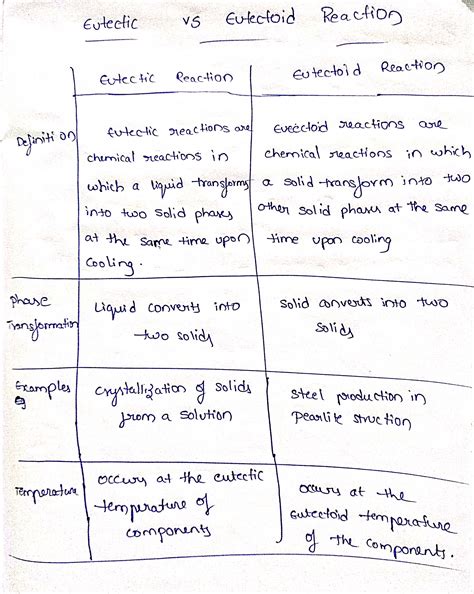 Eutectic vs Eutectoid Reaction
Eutectic Reaction
Eutectoid Reaction
Definition
Eutectic reactions are
chemical reactions in
which a liquid transforms
into two solid phases
at the same time upon
cooling.
Eutectoid reactions are
chemical reactions in which
a solid transform into two
other solid phases at the same
time upon cooling
Phase
Transformation
Liquid converts into
two solids
Solid converts into two
solids
Examples
crystallization of solids
from a solution
Steel production in
Pearlite struction
Temperature
occurs at the eutectic
temperature of
components
occurs at the
Eutectoid temperature
of the components.